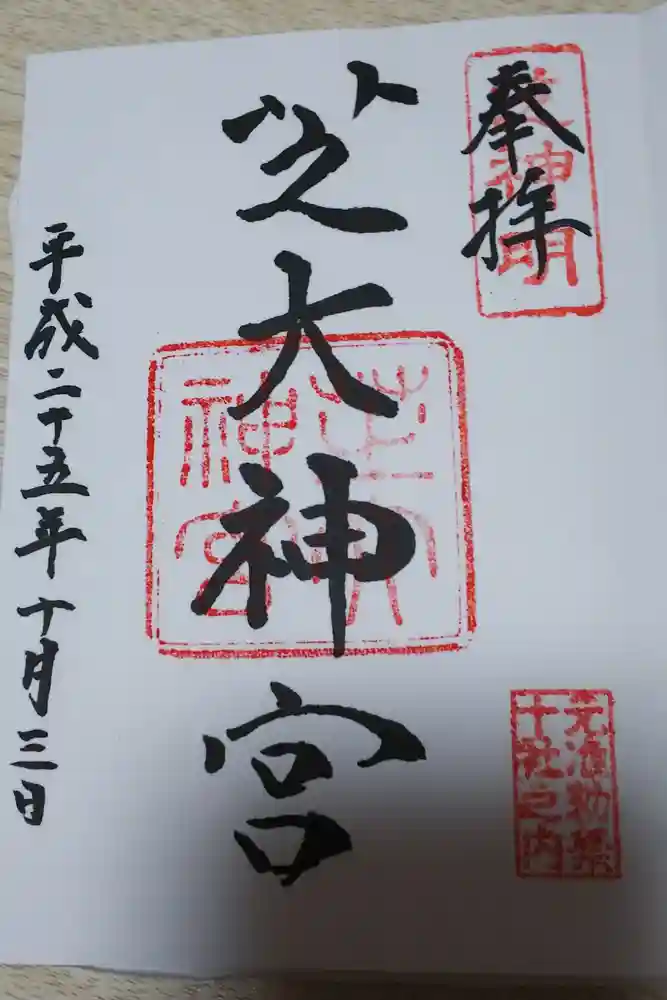 奉拝
芝神明
芝大神宮
芝大
神宮
元准勅祭
十社之内
平成二十五年十月三日